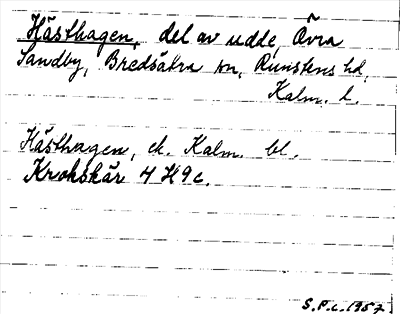 Hästhagen, del av udde, Övra
Sandby, Bredsätra sn, Runstens hd,
Kalm. l.
Hästhagen, ek. Kalm. bl.
Krokskär 4 H9c.
S.P.L. 1957